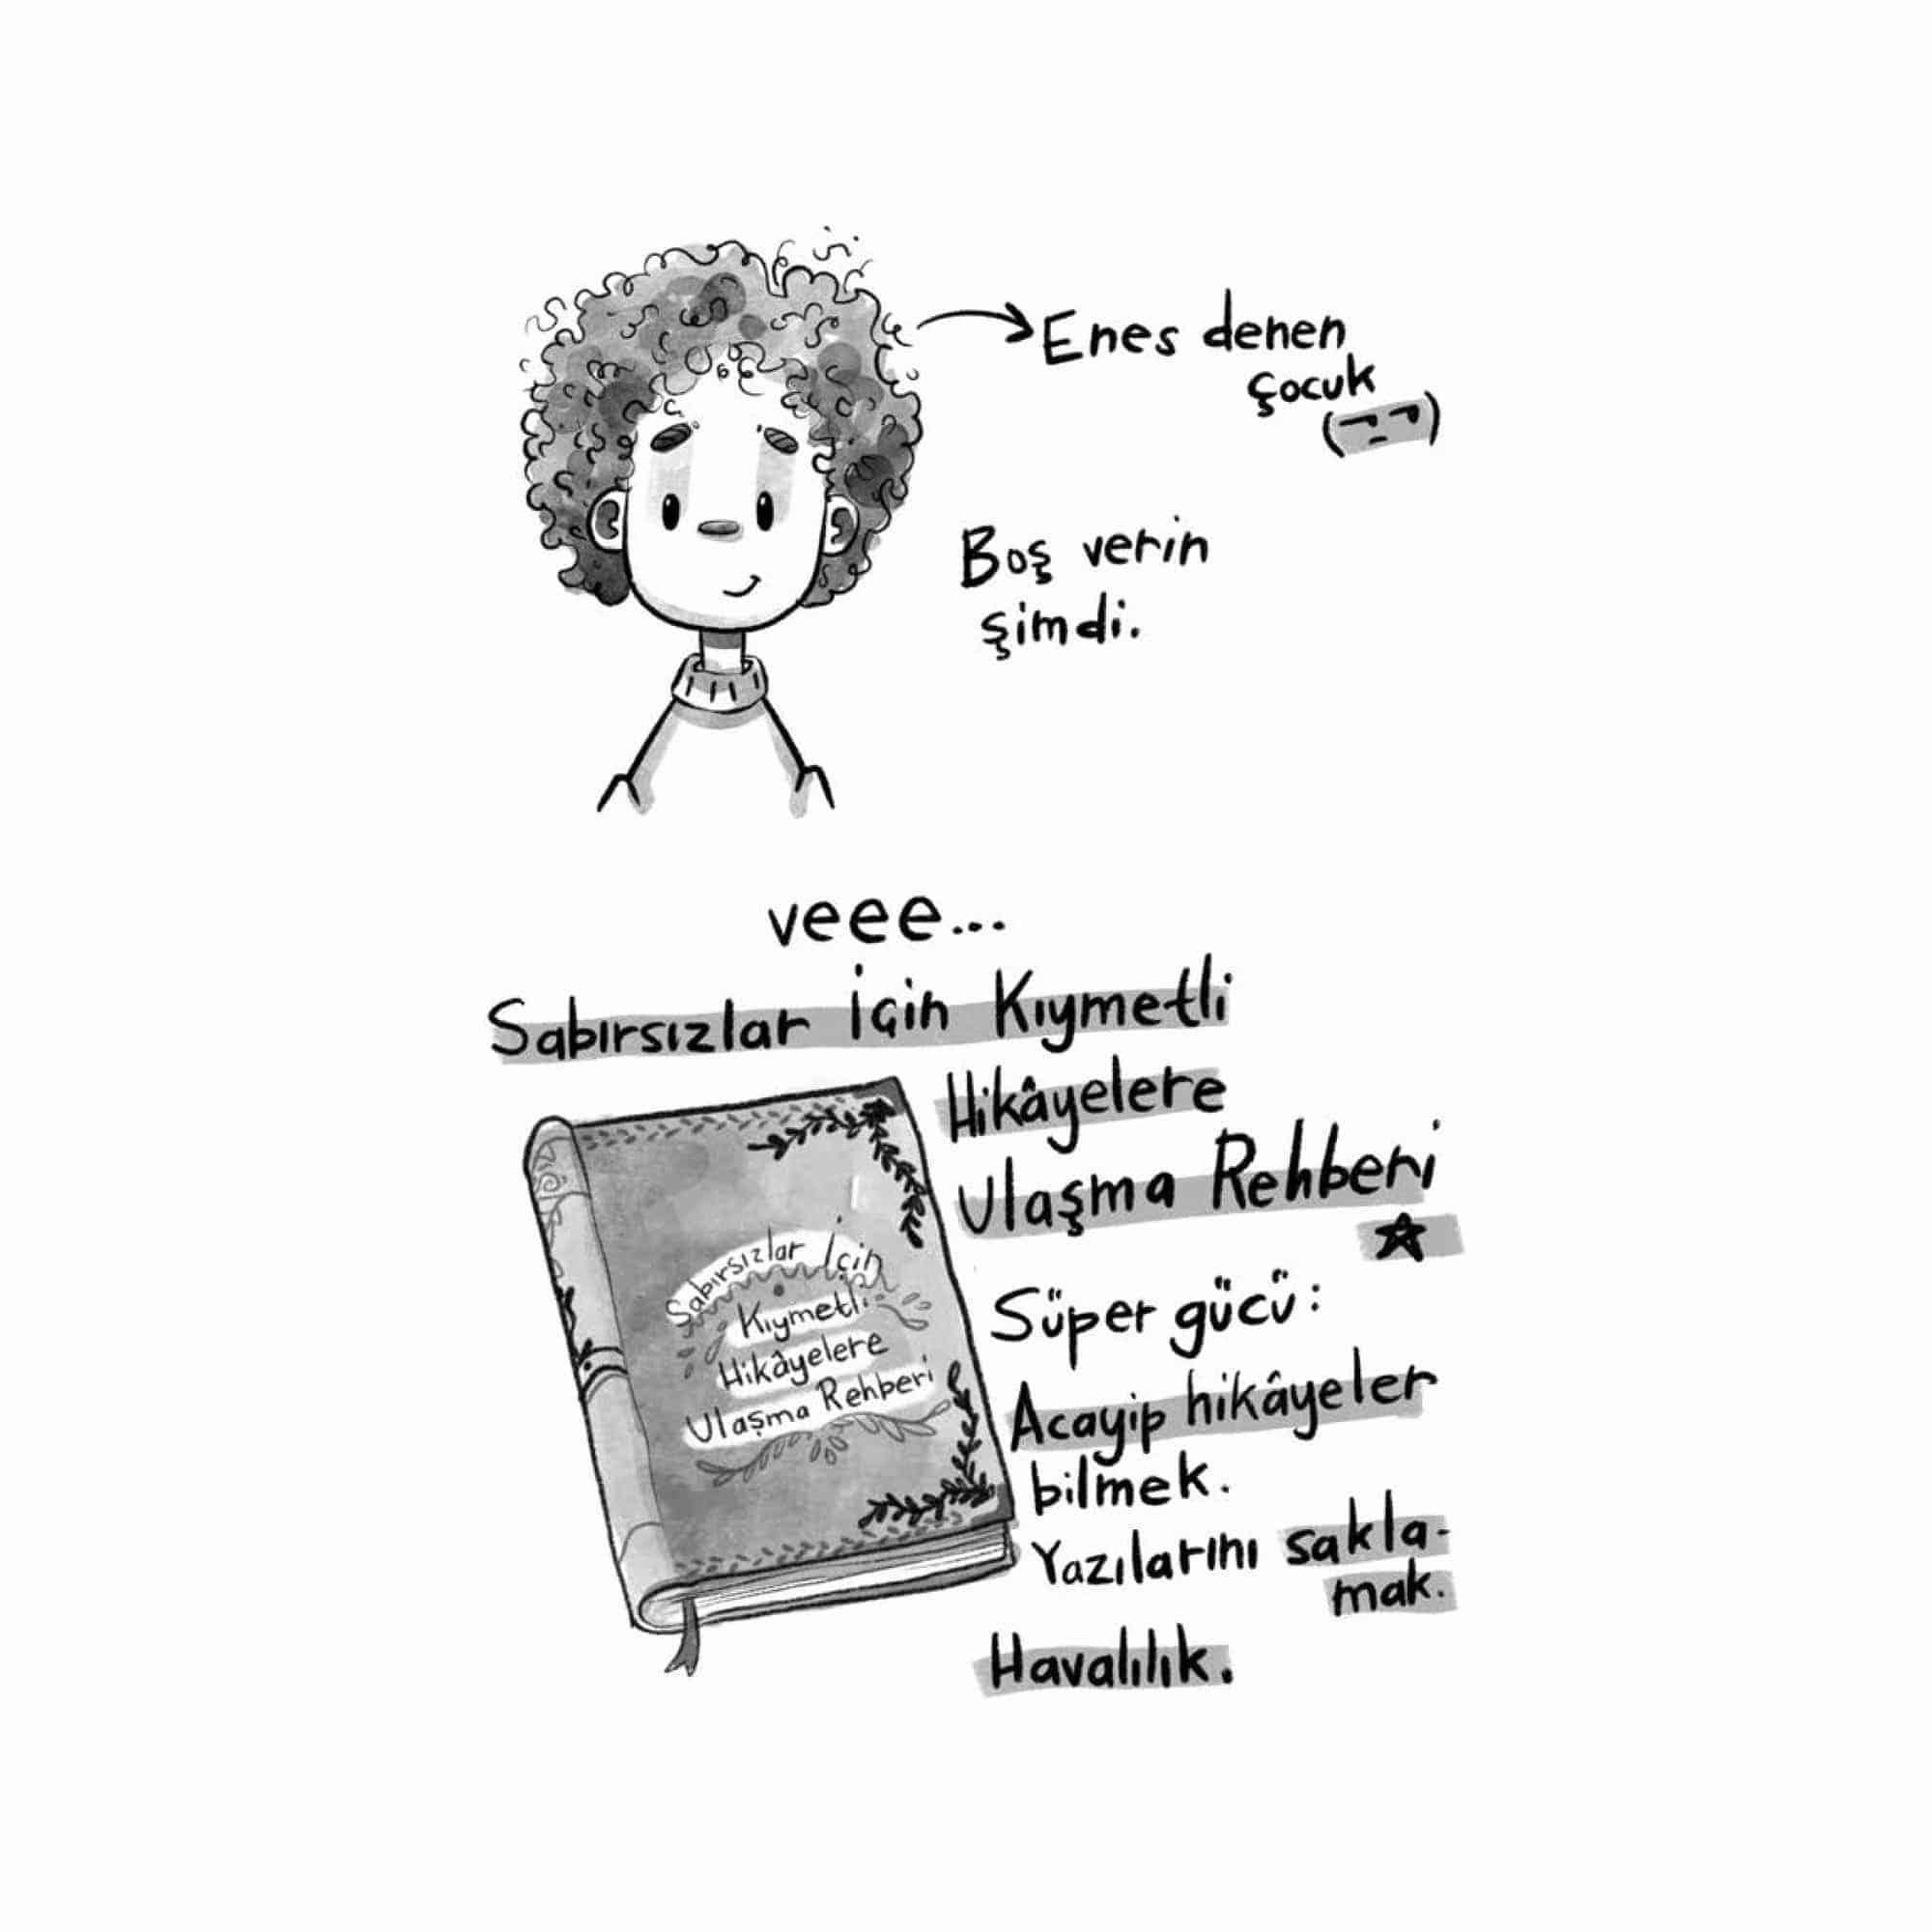 Enes denen
çocuk
Boş verin
şimdi.
veee...
Sabırsızlar İçin Kıymetli
Hikâyelere
Ulaşma Rehberi
Sabırsızlar İçin
Kıymetli
Hikâyelere
Ulaşma Rehberi
Süper gücü:
Acayip hikâyeler
bilmek.
Yazılarını sakla-
mak.
Havalılık.